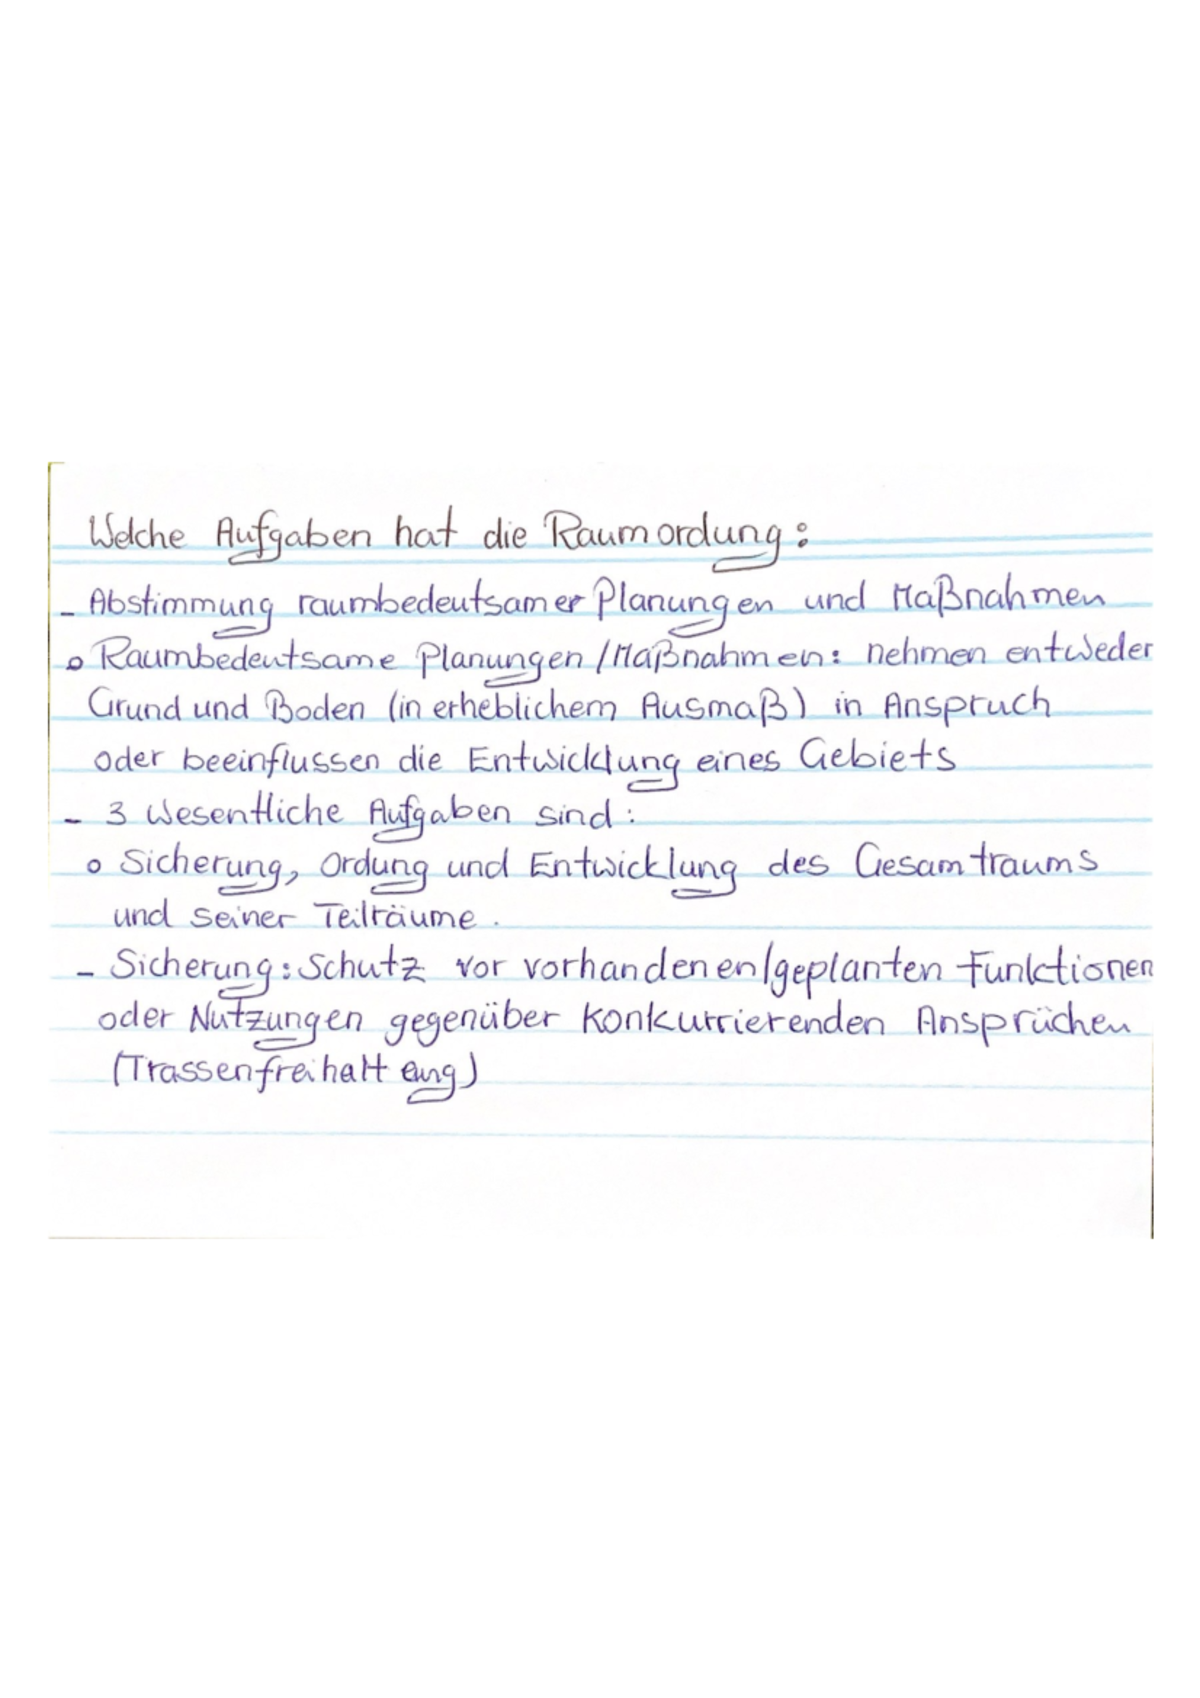 Welche Aufgaben hat die Raumordung:
- Abstimmung raumbedeutsamer Planungen und Maßnahmen
o Raumbedeutsame Planungen / Maßnahmen: nehmen entweder
Grund und Boden (in erheblichem Ausmaß) in Anspruch
oder beeinflussen die Entwicklung eines Gebiets
- 3 Wesentliche Aufgaben sind:
o Sicherung, Ordung und Entwicklung des Gesamtraums
und seiner Teilräume.
- Sicherung: Schutz vor vorhandenen/geplanten Funktionen
oder Nutzungen gegenüber konkurrierenden Ansprüchen
(Trassenfreihaltung)